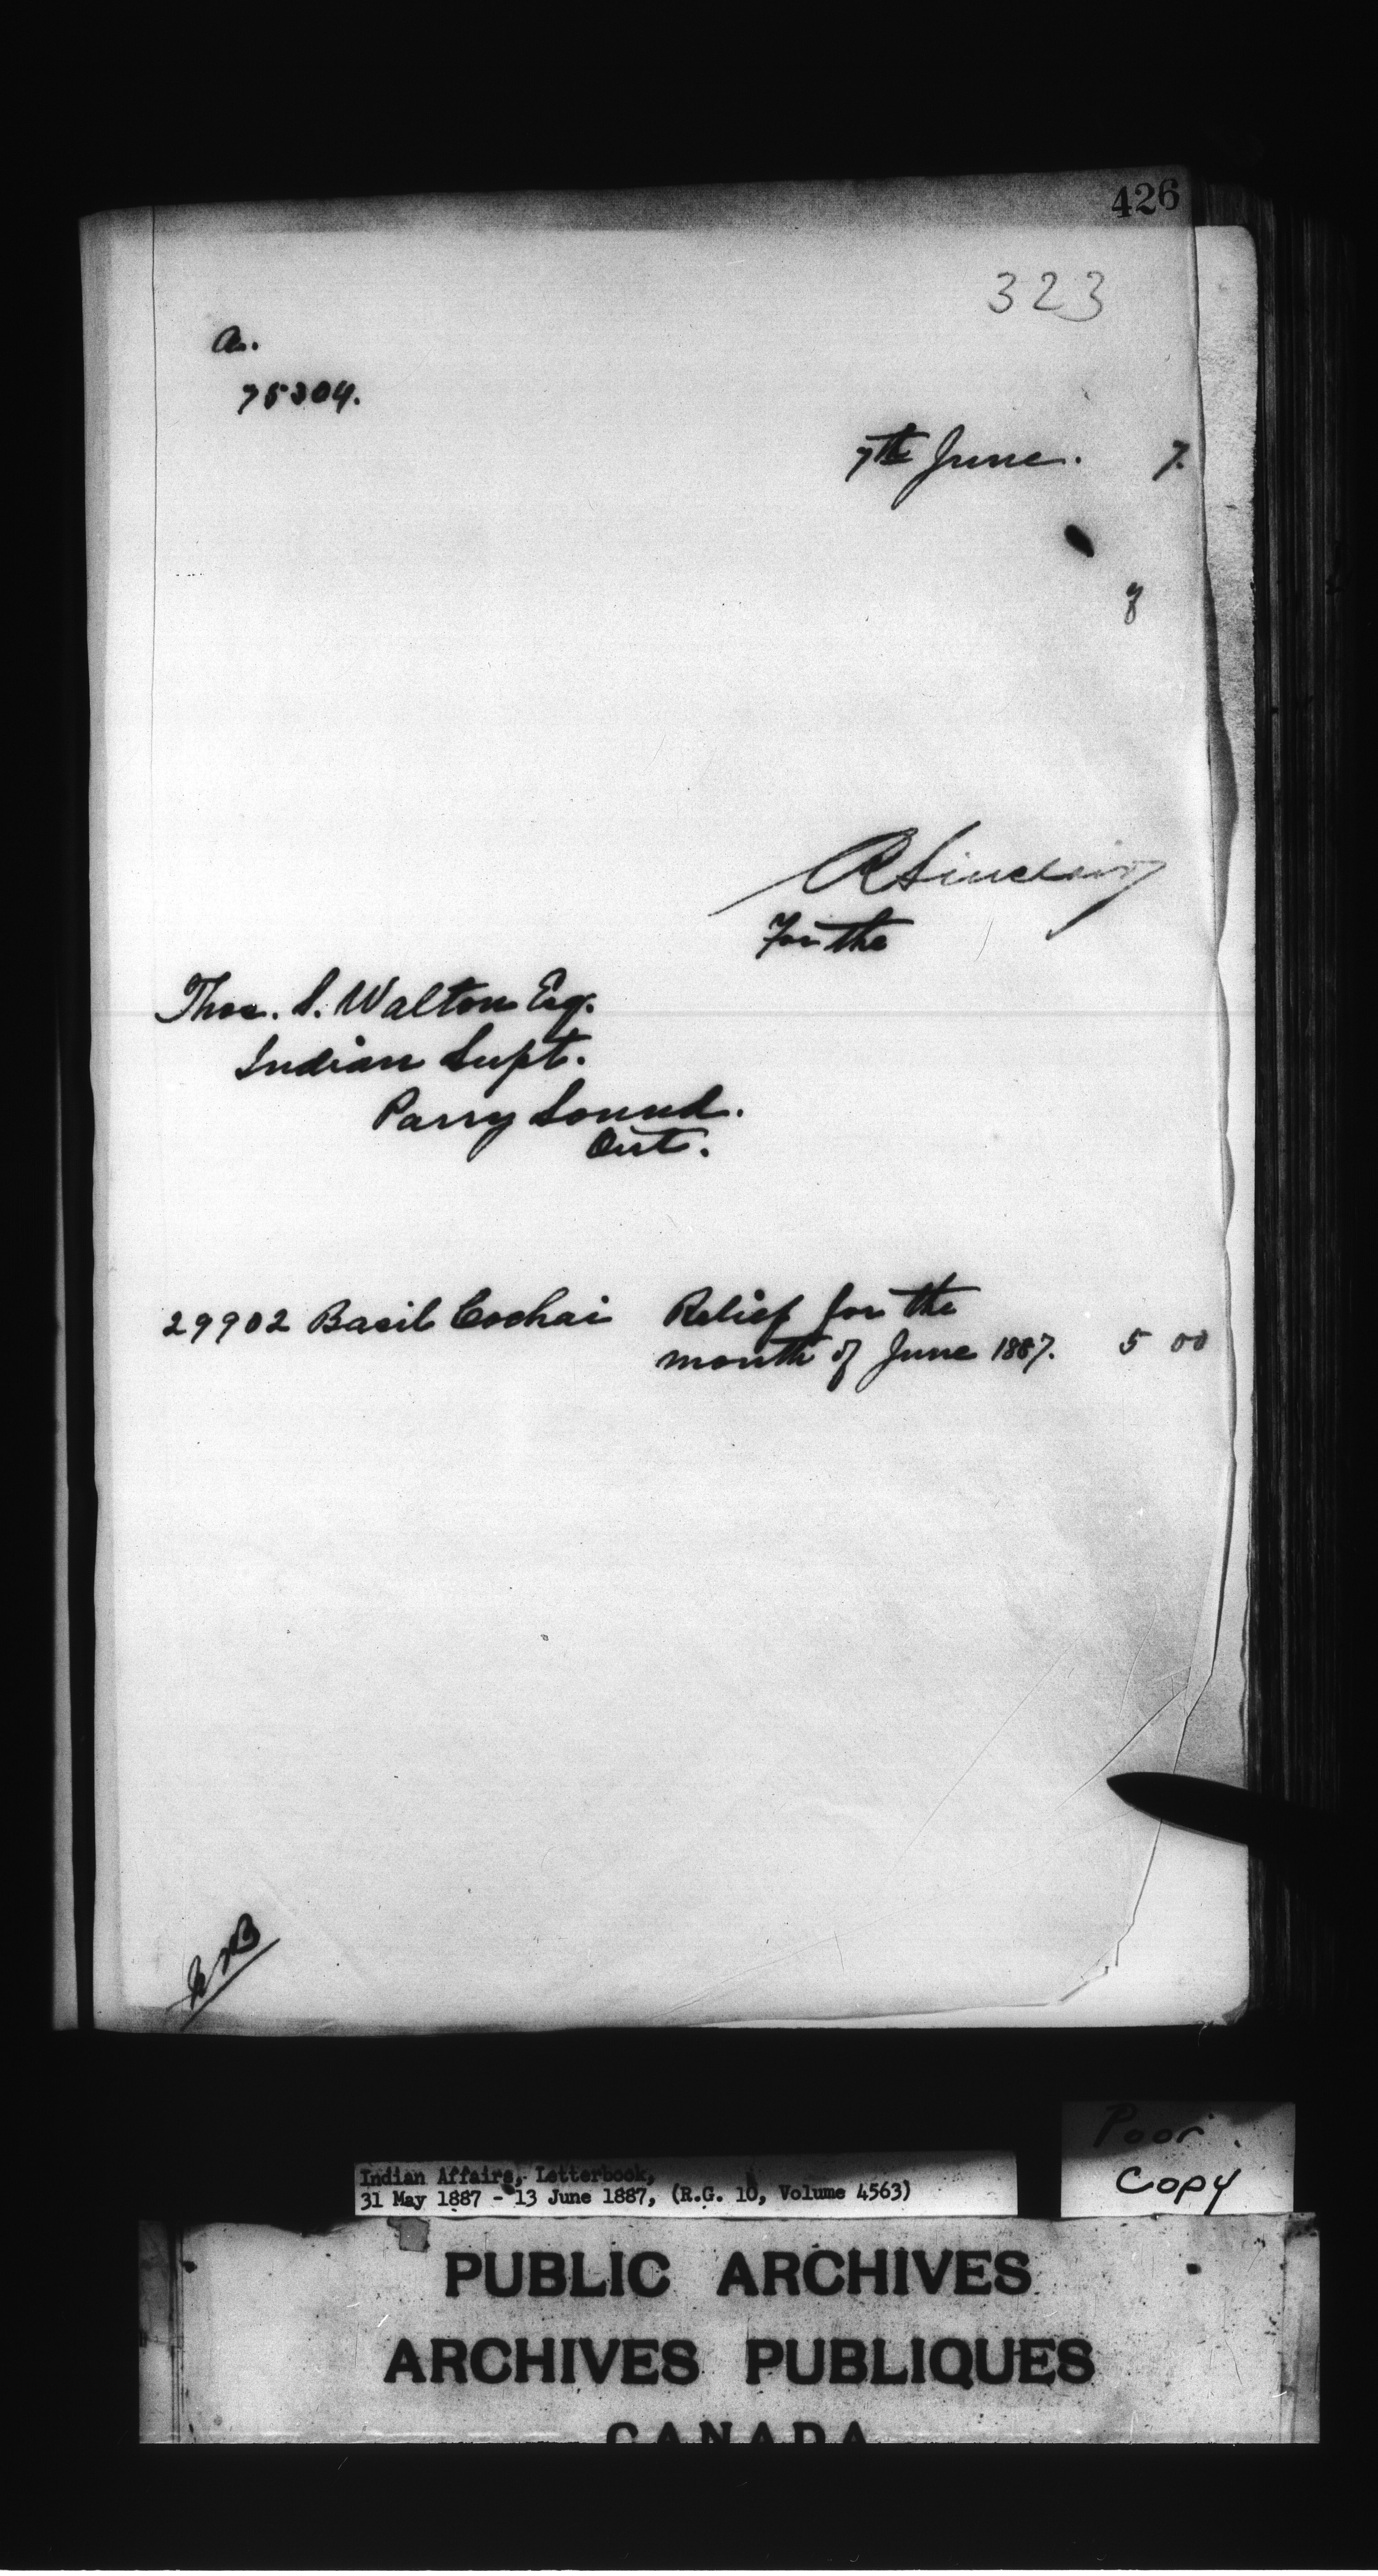 426
323
a.
75304.
7th June. 7.
8
R Sinclair
For the
Thos. S. Walton Esq.
Indian Supt.
Parry Sound.
Ont.
29902 Basil Cochai Relief for the
month of June 1887. 5 00
Poor
Copy
Indian Affairs, Letterbook,
31 May 1887 - 13 June 1887, (R.G. 10, Volume 4563)
PUBLIC ARCHIVES
ARCHIVES PUBLIQUES
CANADA